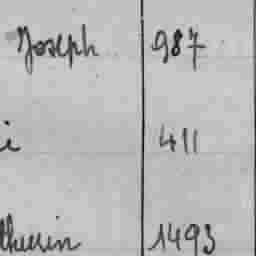 Joseph 987
i 411
thurin 1493